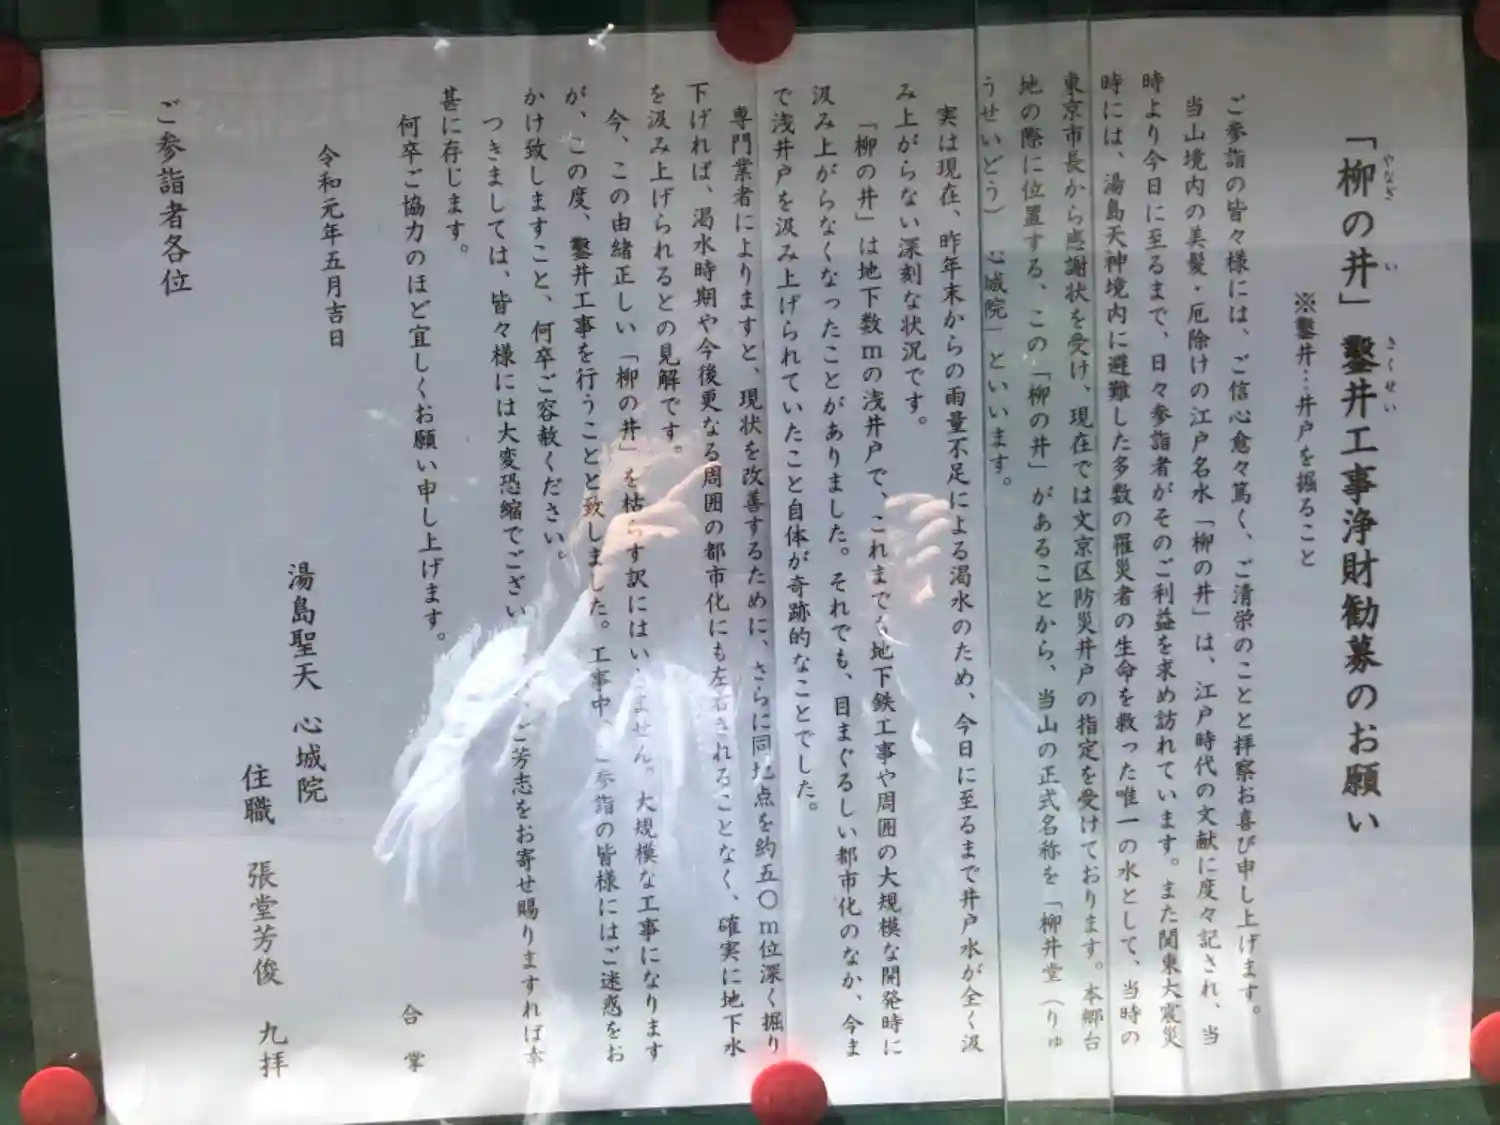 「柳の井」鑿井工事浄財勧募のお願い
やなぎ い さくせい
※鑿井…井戸を掘ること
ご参詣の皆々様には、ご信心愈々篤く、ご清栄のことと拝察お喜び申し上げます。
当山境内の美髪・厄除けの江戸名水「柳の井」は、江戸時代の文献に度々記され、当
時より今日に至るまで、日々参詣者がそのご利益を求め訪れています。また関東大震災
時には、湯島天神境内に避難した多数の罹災者の生命を救った唯一の水として、当時の
東京市長から感謝状を受け、現在では文京区防災井戸の指定を受けております。本郷台
地の際に位置する、この「柳の井」があることから、当山の正式名称を「柳井堂（りゅ
うせいどう） 心城院」といいます。
実は現在、昨年末からの雨量不足による渇水のため、今日に至るまで井戸水が全く汲
み上がらない深刻な状況です。
「柳の井」は地下数ｍの浅井戸で、これまでも地下鉄工事や周囲の大規模な開発時に
汲み上がらなくなったことがありました。それでも、目まぐるしい都市化のなか、今ま
で浅井戸を汲み上げられていたこと自体が奇跡的なことでした。
専門業者によりますと、現状を改善するために、さらに同地点を約五〇ｍ位深く掘り
下げれば、渇水時期や今後更なる周囲の都市化にも左右されることなく、確実に地下水
を汲み上げられるとの見解です。
今、この由緒正しい「柳の井」を枯らす訳にはいきません。大規模な工事になります
が、この度、鑿井工事を行うことと致しました。工事中、参詣の皆様にはご迷惑をお
かけ致しますこと、何卒ご容赦ください。
つきましては、皆々様には大変恐縮でござい ご芳志をお寄せ賜りますれば幸
甚に存じます。
何卒ご協力のほど宜しくお願い申し上げます。
合掌
令和元年五月吉日
湯島聖天 心城院
住職 張堂芳俊 九拝
ご参詣者各位